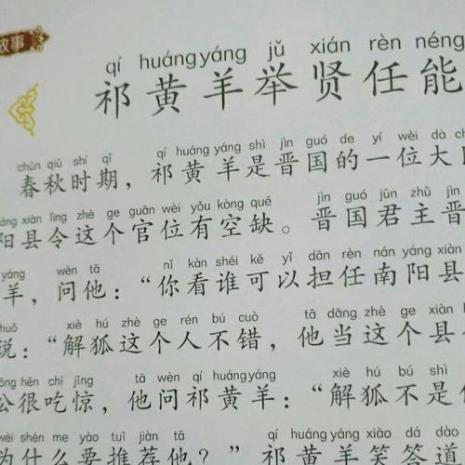 故事
qí huáng yáng jǔ xián rèn néng
祁黄羊举贤任能
chūn qiū shí qī qí huáng yáng shì jìn guó de yí wèi dà
春秋时期，祁黄羊是晋国的一位大
xiàn lìng zhè ge guān wèi yǒu kòng quē jìn guó jūn zhǔ jìn
阳县令这个官位有空缺。晋国君主晋
yáng wèn tā nǐ kàn shéi kě yǐ dān rèn nán yáng xiàn
羊，问他：“你看谁可以担任南阳县
shuō xiè hú zhè ge rén bú cuò tā dāng zhè ge xiàn
说：“解狐这个人不错，他当这个县
hěn chī jīng tā wèn qí huáng yáng xiè hú bú shì
公很吃惊，他问祁黄羊：“解狐不是
wèi shén me yào tuī jiàn tā qí huáng yáng xiào dá dào
为什么要推荐他？”祁黄羊笑答道